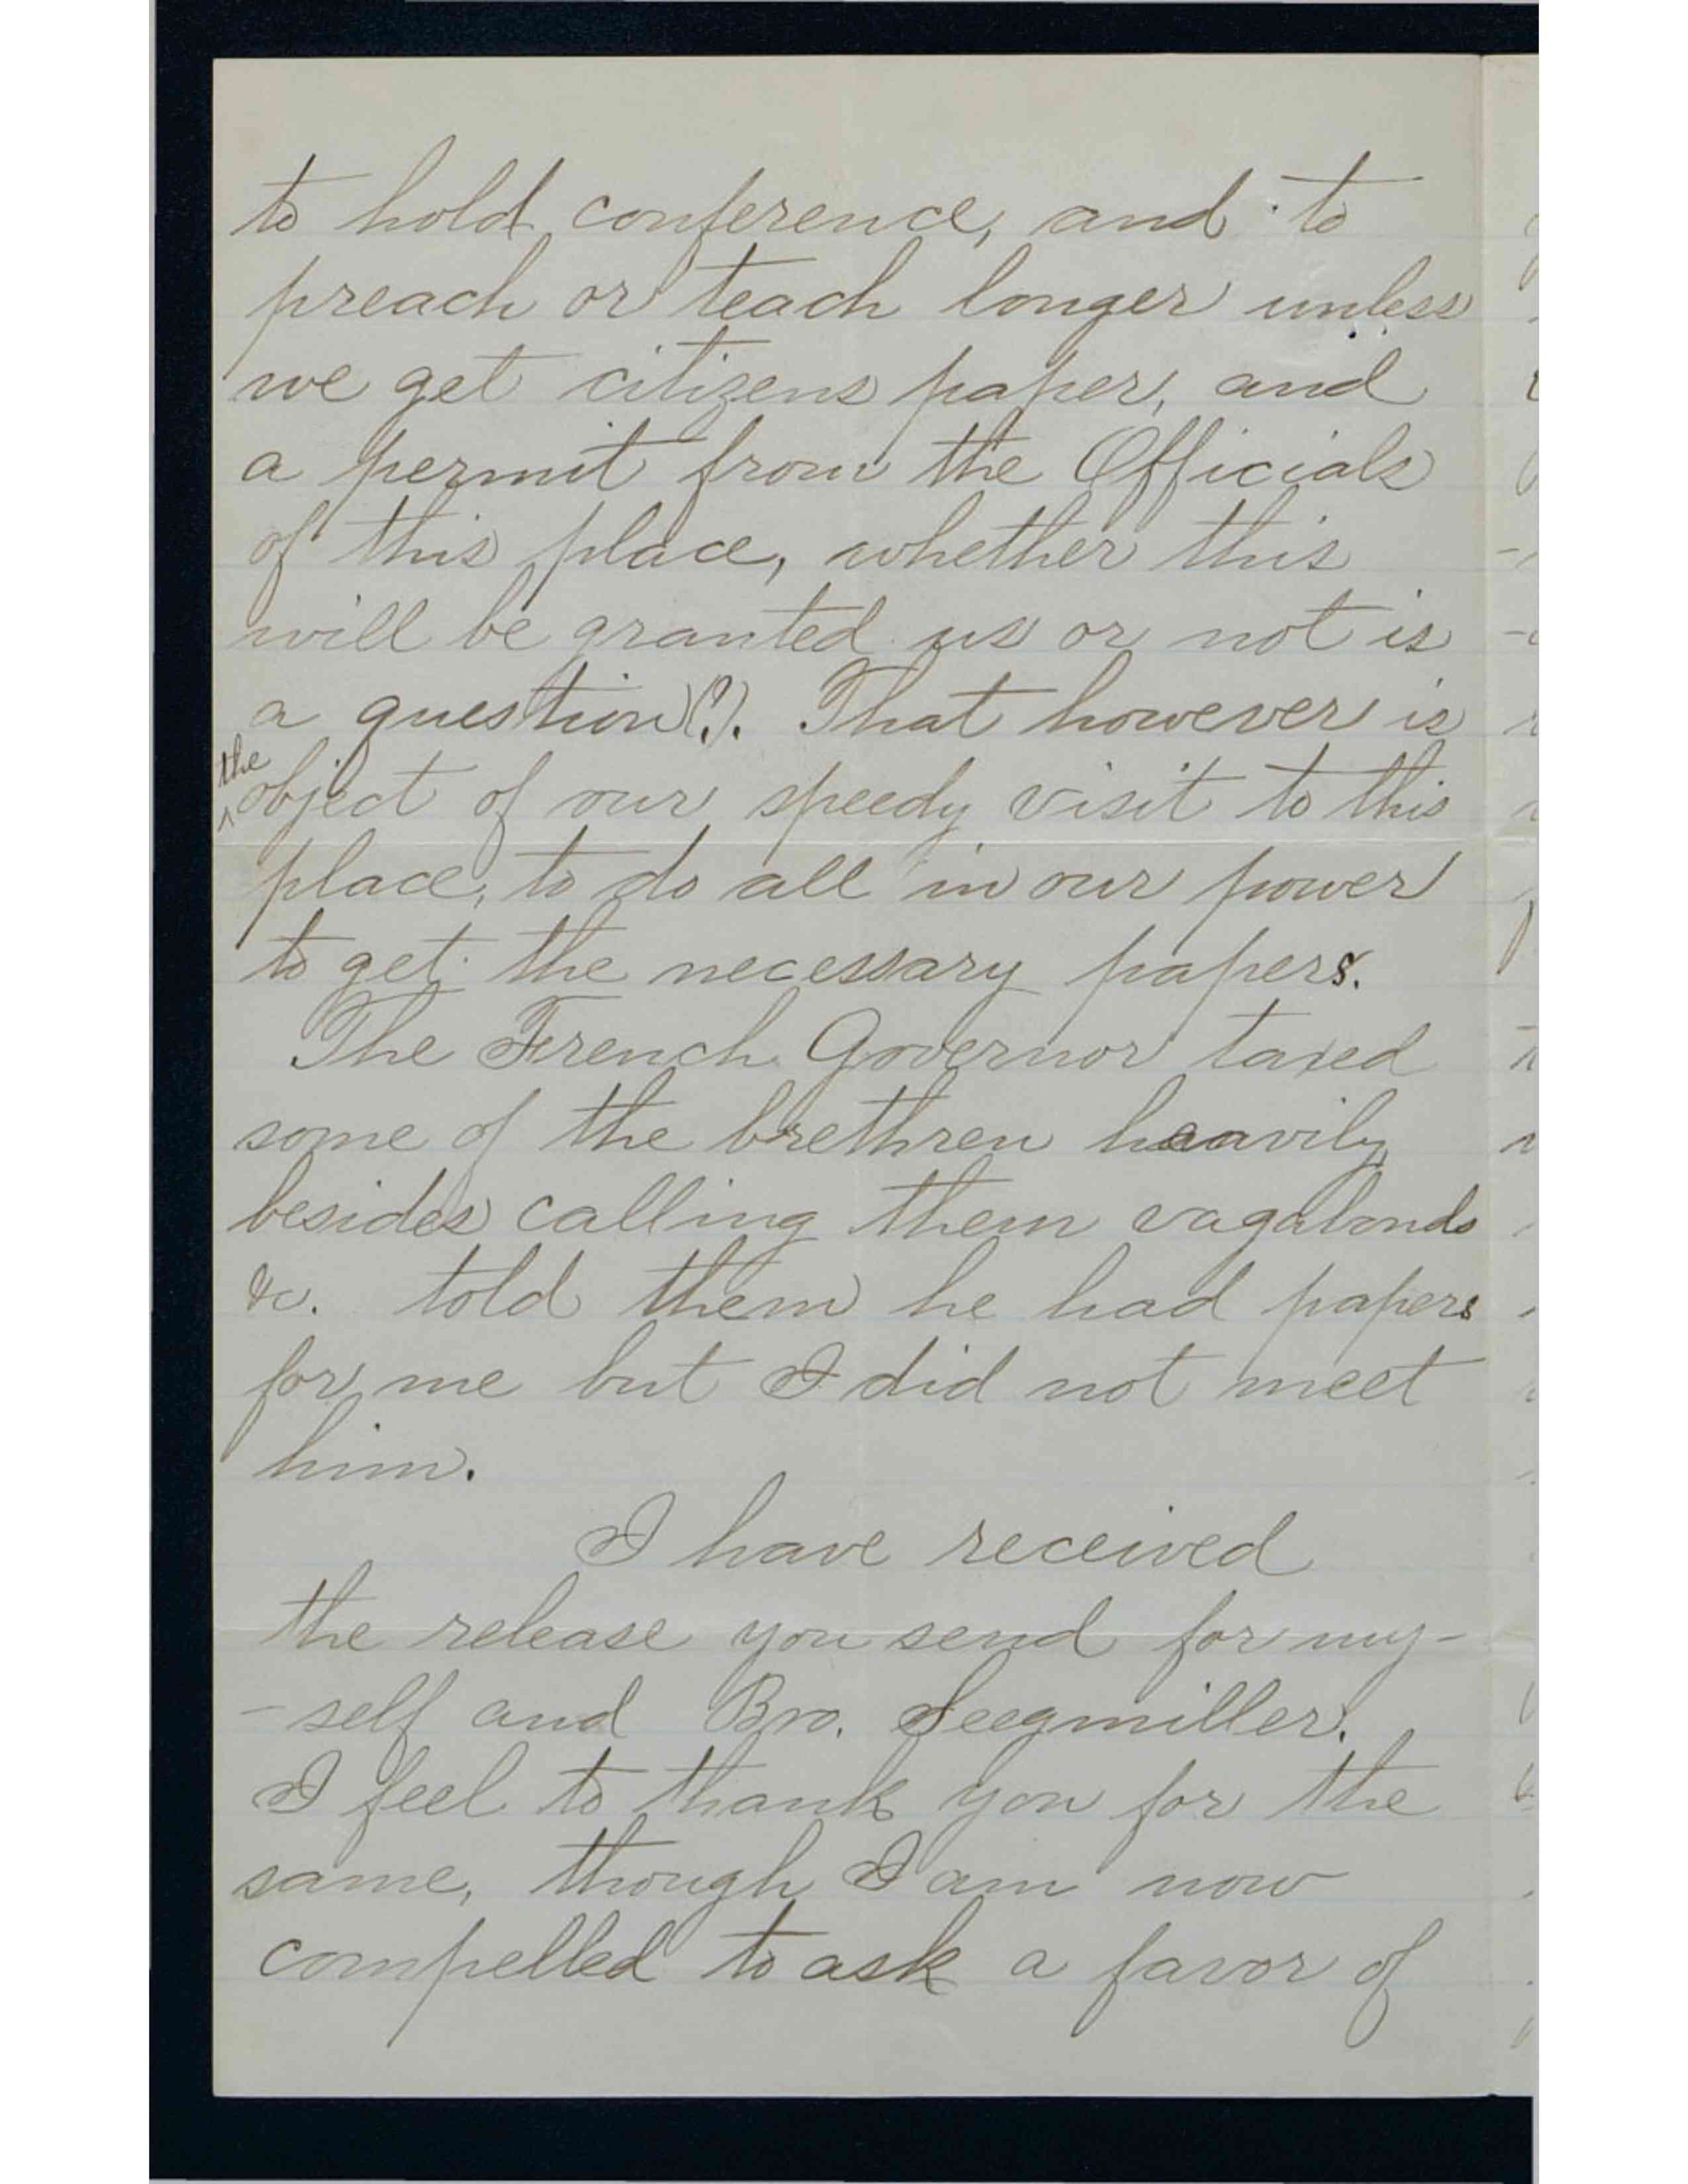 to hold conference, and to
preach or teach longer unless
we get citizens paper, and
a permit from the Officials
of this place, whether this
will be granted us or not is
a question(?). That however is
the
^object of our speedy visit to this
place, to do all in our power
to get the necessary papers.
The French Governor taxed
some of the brethren heavily,
besides calling them vagabonds
&c. told them he had papers
for me but I did not meet
him.
I have received
the release you send for my-
-self and Bro. Seegmiller.
I feel to thank you for the
same, though I am now
compelled to ask a favor of